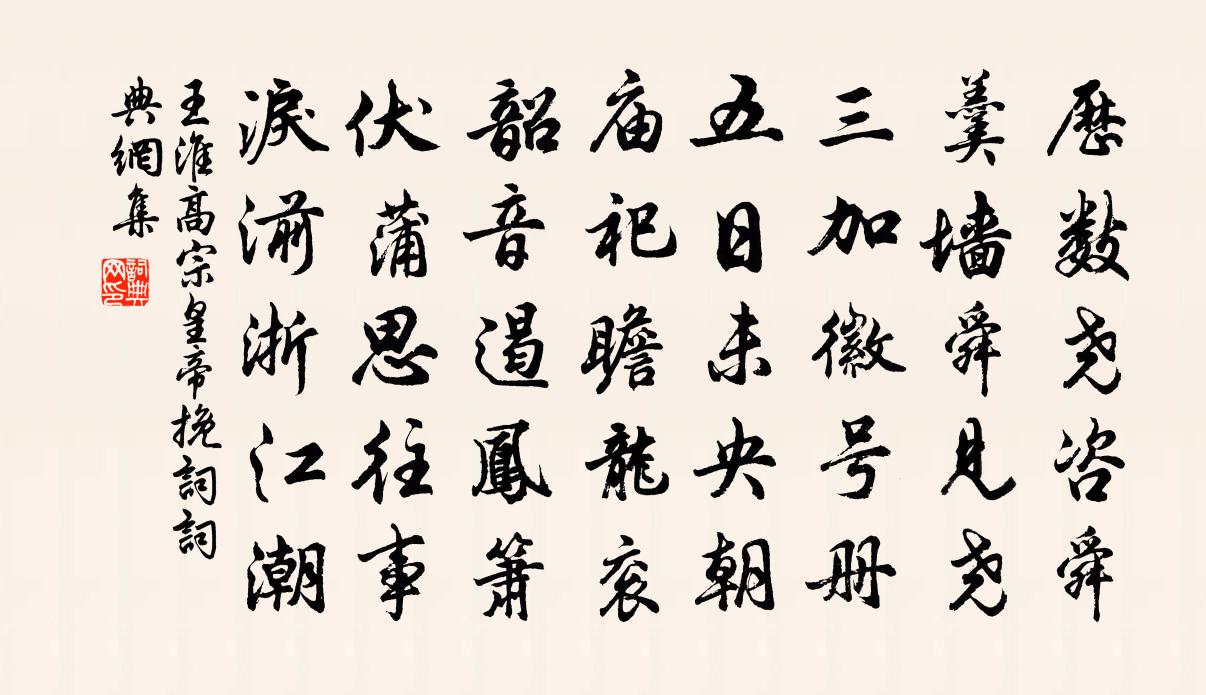 历数尧咨舜
羹墙舜见尧
三加徽号册
五日未央朝
庙祀瞻龍衮
韶音遏鳳箫
伏蒲思往事
淚湔浙江潮
王淮高宗皇帝挽詞詞
典網集
詞典
网印